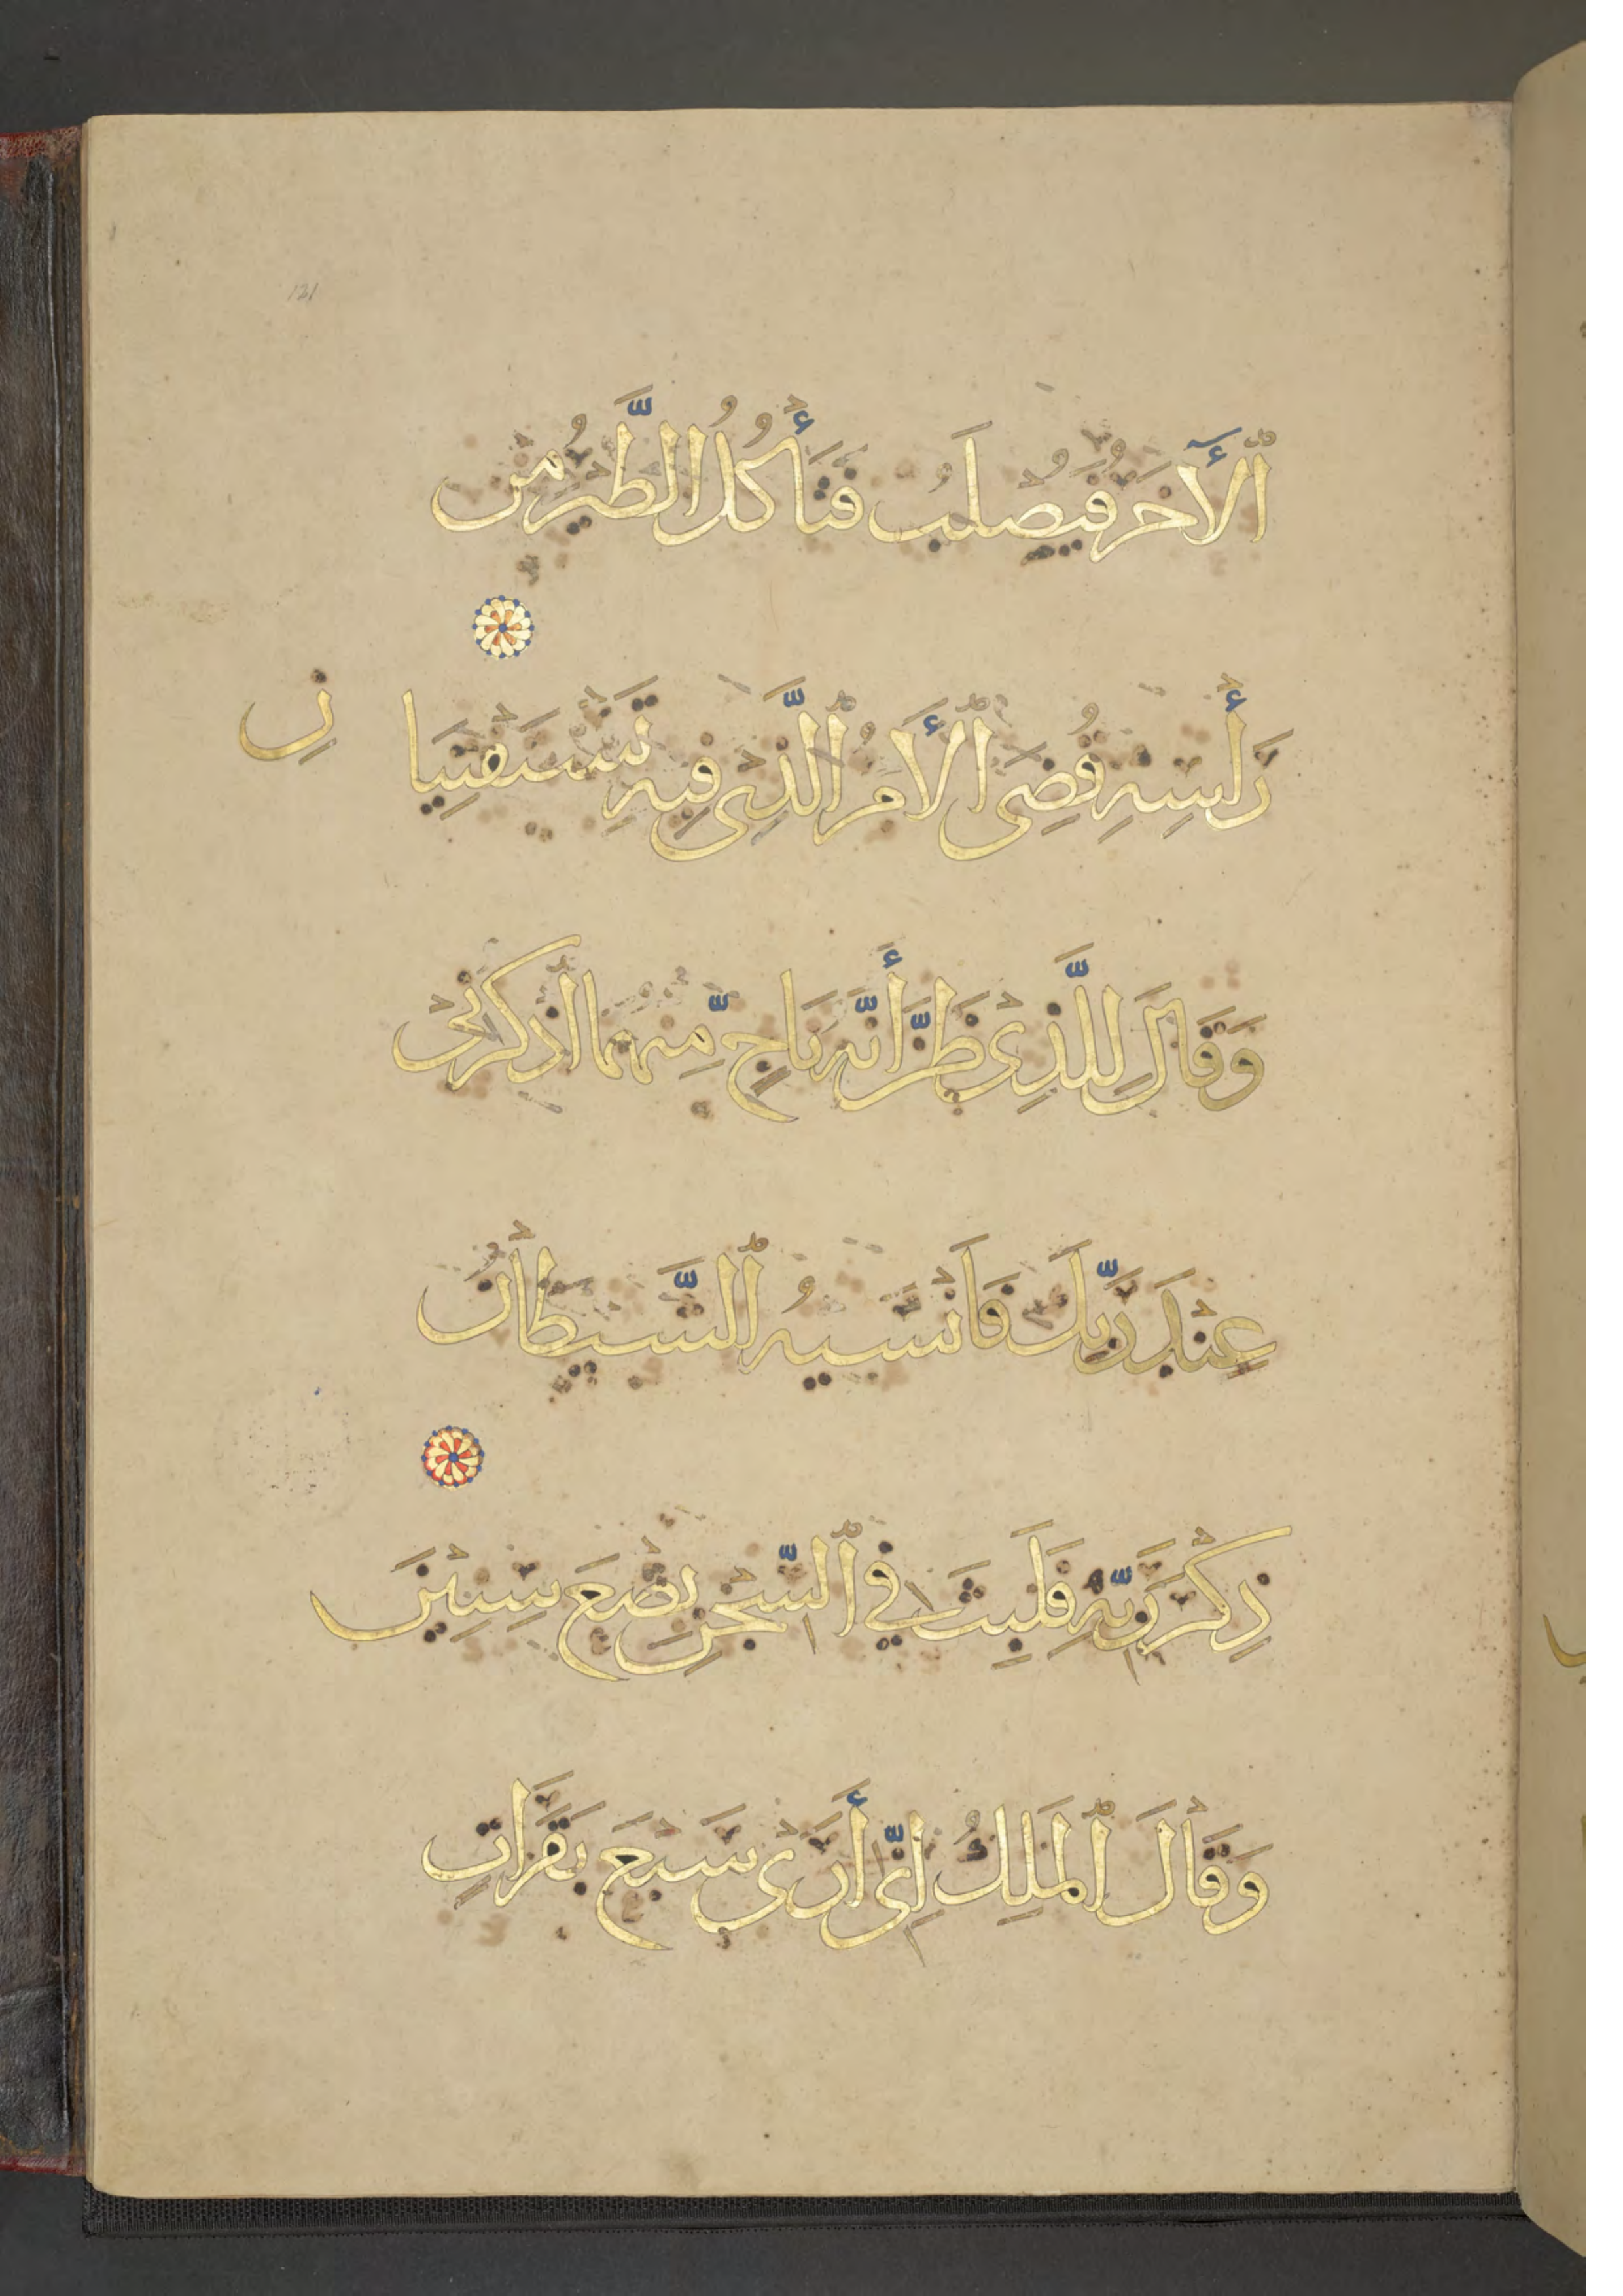 121
ٱلْأٓخَرُ فَيُصْلَبُ فَتَأْكُلُ ٱلطَّيْرُ مِن
رَأْسِهِ قُضِىَ ٱلْأَمْرُ ٱلَّذِى فِيهِ تَسْتَفْتِيَانِ
وَقَالَ لِلَّذِى ظَنَّ أَنَّهُ نَاجٍ مِّنْهُمَا ٱذْكُرْنِى
عِنْدَ رَبِّكَ فَأَنْسَيٰهُ ٱلشَّيْطَانُ
ذِكْرَ رَبِّهِ فَلَبِثَ فِي ٱلسِّجْنِ بِضْعَ سِنِيْنَ
وَقَالَ ٱلْمَلِكُ إِنِّى أَرَىٰ سَبْعَ بَقَرَاتٍ